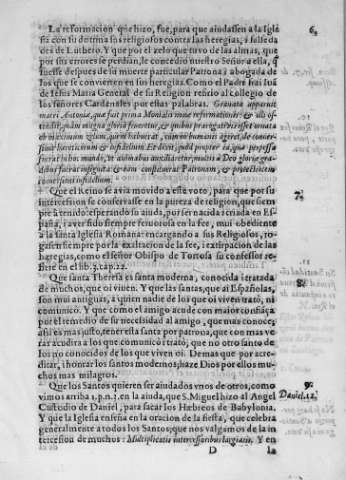 La reformacion que hizo, fue, para que aiudassen a la Igle
sia con su dotrina sus religiosos contra las heregias, i falseda
des de Luthero. Y que por el zelo que tuvo de las almas, que
por sus errores se perdian, le concedio nuestro Señor a ella, q̃
fuesse despues de su muerte particular Patrona i abogada de
los que se convierten en sus heregias. Como el Padre frai Iuã
de Iesus Maria General de su Religion refirio al collegio de
los señores Cardenales por estas palabras. Gravata apparuit
matri Antonia, quæ fuit prima Monialis nove reformationis: & illi os-
tendit, quàm magna gloria frueretur, & quibus prærogativis esset ornata
ob maximum zelum, quem habuerat, cum in humanis ageret, de conver-
sione hæreticorum & infidelium. Et ideò, quòd propter ea, quæ perpessa
fuerat in hoc mundo, ut animabus auxiliaretur, multis à Deo gloriæ gra-
dibus fuerat insignita: & eam constituerat Patronam, & protectricem
conversionis infidelium.
Que el Reino se avia movido a este voto, para que por su
intercession se conservasse en la pureza de religion, que siem
pre à tenido: esperando su aiuda, por ser nacida i criada en Es
paña, i aver sido siempre fervorosa en la fee, mui obediente
a la santa Iglesia Romana: encargando a sus Religiosos, ro-
gassen siempre por la exaltacion de la fee, i extirpacion de las
heregias, como el señor Obispo de Tortosa su confessor re-
fiere en el lib. 3. cap. 22.
Que santa Theresa es santa moderna, conocida i tratada
de muchos, que oi viven. Y que las santas, que ai Españolas,
son mui antiguas, a quien nadie de los que oi viven trató, ni
comunicó. Y que como el amigo acude con maior confiãça
por el remedio de su necessidad al amigo, que mas conoce;
assi es mas justo, tener esta santa por patrona, que con mas ve
ras acudira a los que comunicò i tratò, que no otro santo de
los no conocidos de los que viven oi. Demas que por acre-
ditar, i honrar los santos modernos, haze Dios por ellos mu-
chos mas milagros.
Que los Santos quieren ser aiudados vnos de otros, como
vimos arriba 1. p. n. 3. en la aiuda, que S. Miguel hizo al Angel
Custodio de Daniel, para sacar los Hebreos de Babylonia.
Y que la Iglesia enseña en la oracion de la fiesta, que celebra
generalmente a todos los Santos; que nos valgamos de la in
tercession de muchos: Multiplicatis intercessoribus largiaris. Y en
D la
6.
7.
8.
9.
Daniel. 12.